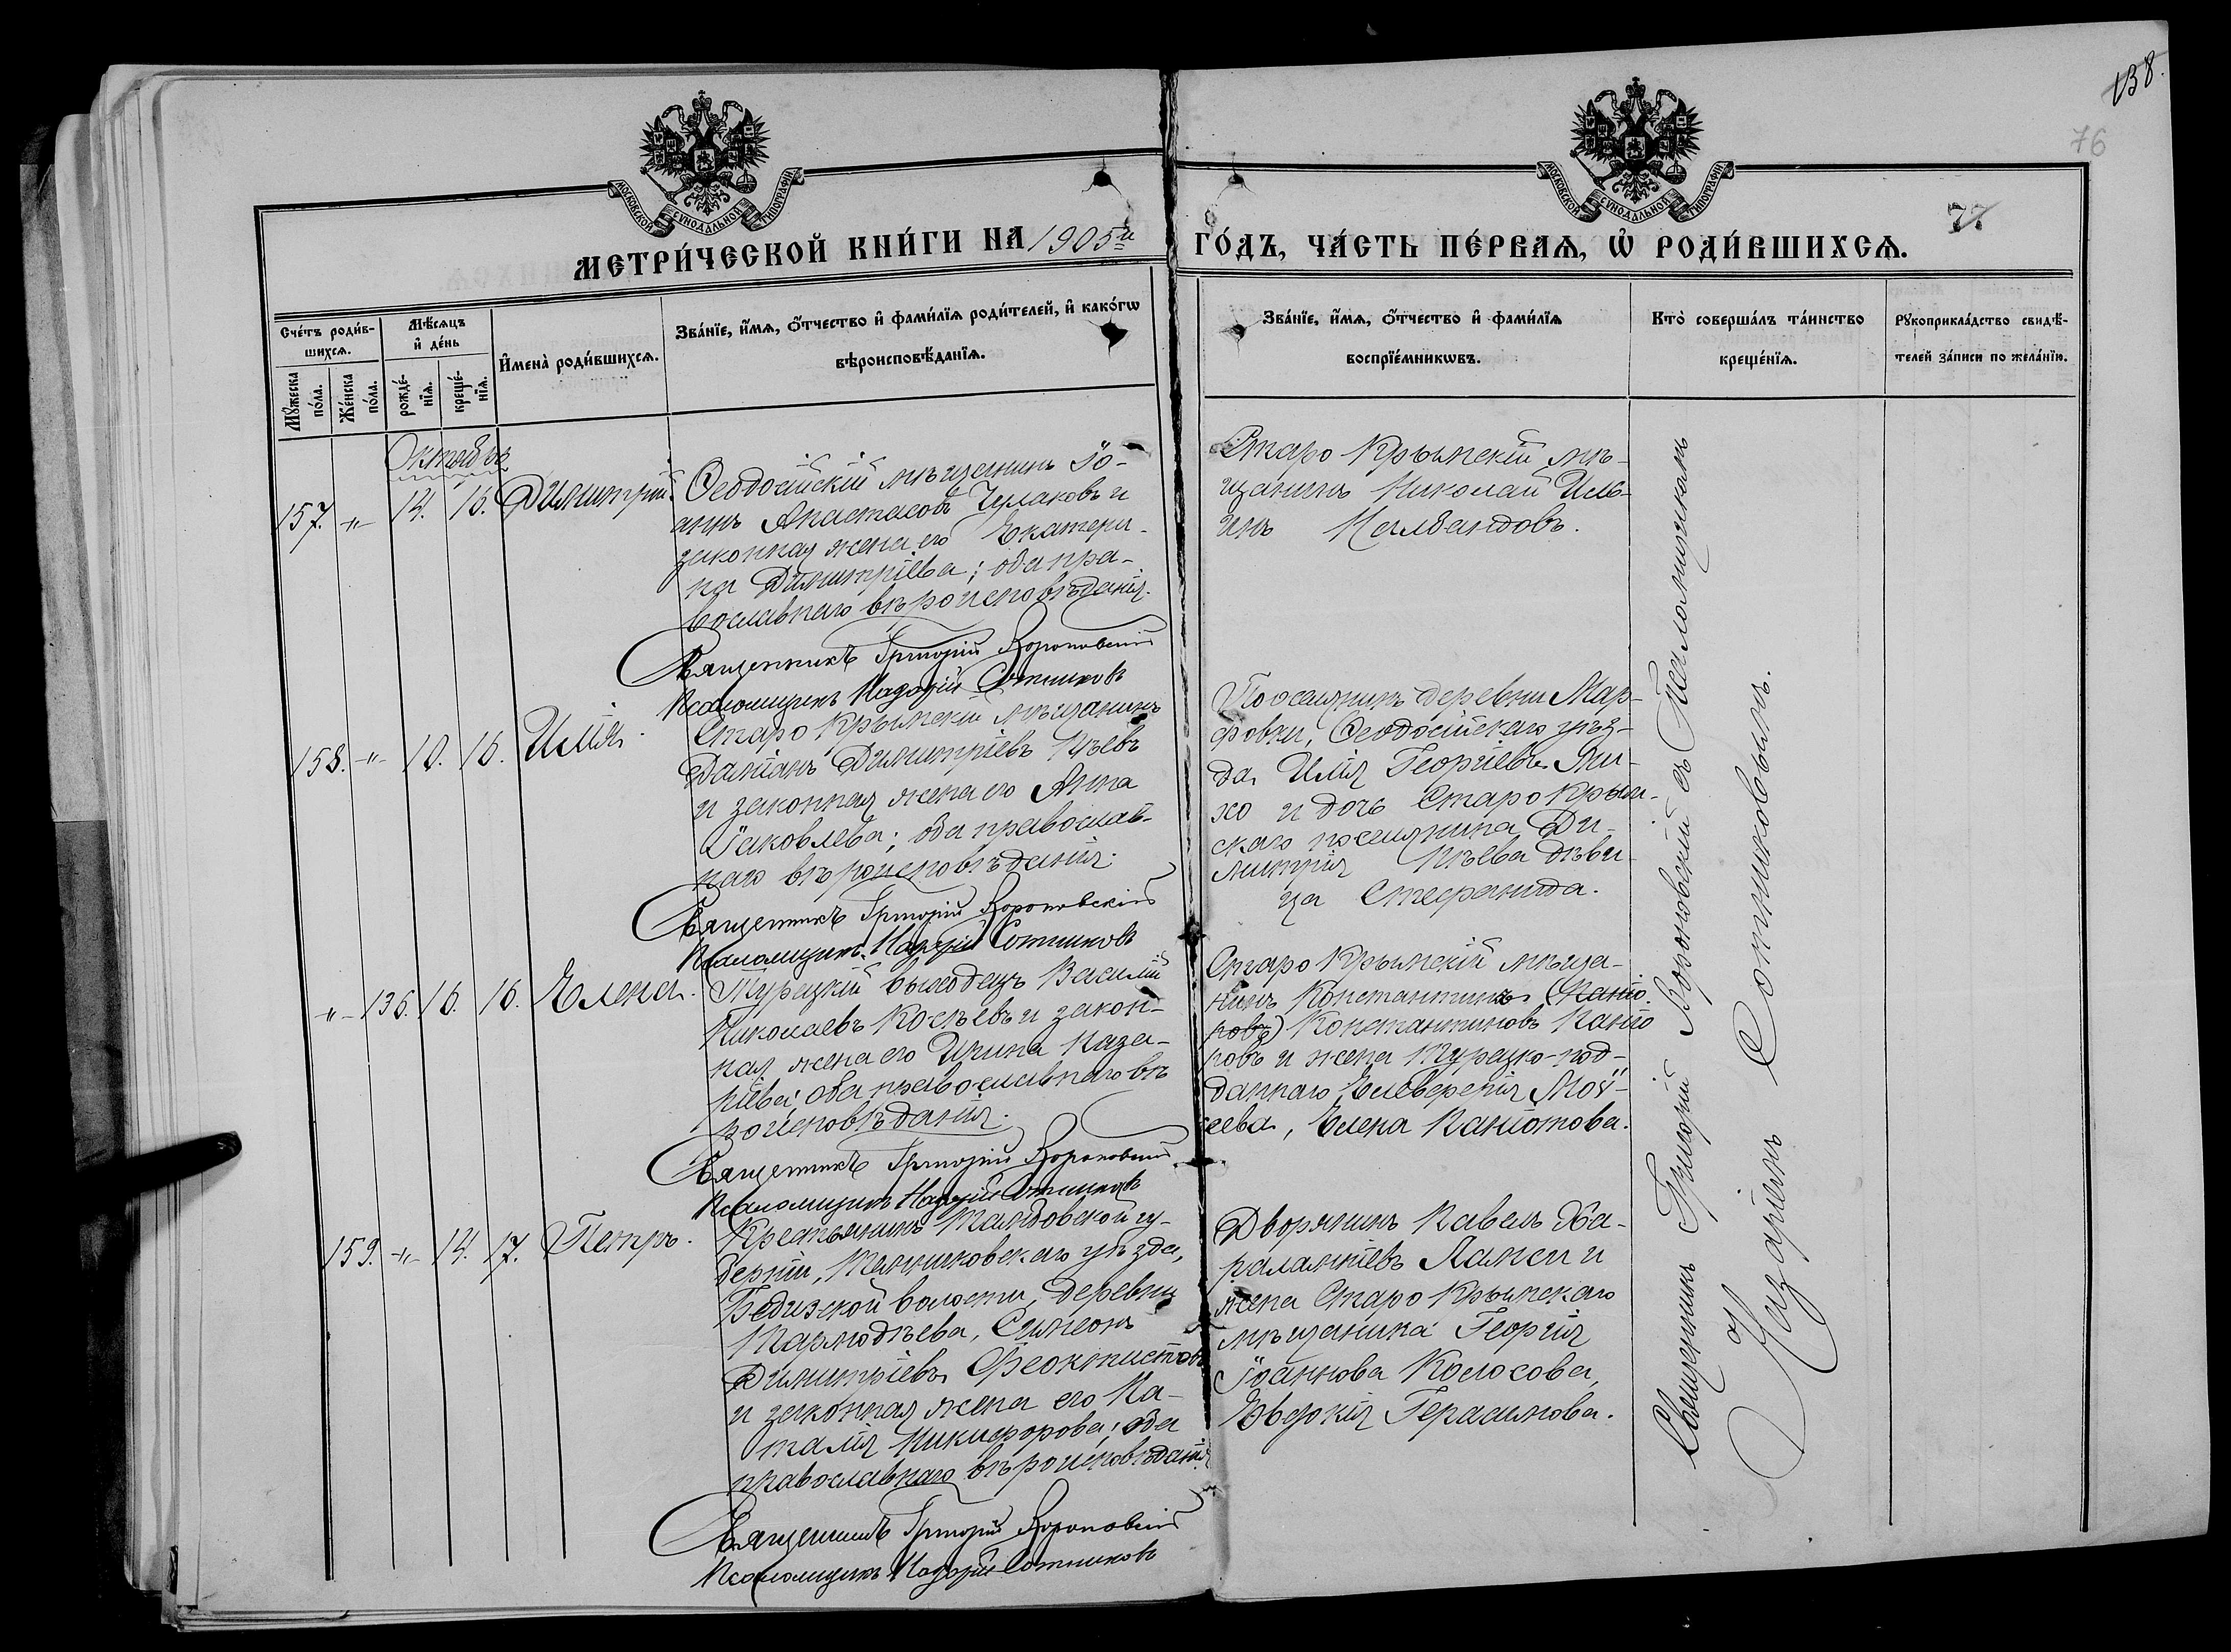 138.
76
77
МОСКОВСКОЙ СѴНОДАЛЬНОЙ ТИПОГРАФІИ
МОСКОВСКОЙ СѴНОДАЛЬНОЙ ТИПОГРАФІИ
МЕТРИ́ЧЕСКОЙ КНИ́ГИ НА 1905й ГО́ДЪ, ЧА́СТЬ ПЕ́РВАѦ, Ѽ РОДИ́ВШИХСѦ.
Сче́тъ роди́в-
шихсѧ.
Мꙋ́жеска
по́ла.
Же́нска
по́ла.
Мѣ́сѧцъ
и҆ де́нь
рожде́-
нїѧ.
креще́-
нїѧ.
И҆мена̀ роди́вшихсѧ.
Зва́нїе, и҆́мѧ, ѻ҆́тчество и҆ фами́лїѧ роди́телей, и҆ како́гѡ
вѣроисповѣ́данїѧ.
Зва́нїе, и҆́мѧ, ѻ҆́тчество и҆ фами́лїѧ
воспрїе́мникѡвъ.
Кто̀ соверша́лъ та́инство
креще́нїѧ.
Рꙋкоприкла́дство свидѣ́-
телей за́писи по жела́нїю.
Октябрь
157. -"- 14. 16. Димитрій.
Ѳеодосійскій мѣщанинъ Іо-
аннъ Анастасовъ Чулаковъ и
законная жена его Екатери-
на Димитріева; оба пра-
вославнаго вѣроисповѣданія.
Священникъ Григорій Вороновскій
Псаломщикъ Назарій Сотниковъ
Старо Крымскій мѣ-
щанинъ Николай Иль-
инъ Налбандовъ.
158. -"- 10. 16. Илія.
Старо Крымскій мѣщанинъ
Даміанъ Димитріевъ Кѣевъ
и законная жена его Анна
Іаковлева; оба православ-
наго вѣроисповѣданія.
Священникъ Григорій Вороновскій
Псаломщикъ Назарій Сотниковъ
Поселянинъ деревни Мар-
фовки, Ѳеодосійскаго уѣз-
да Илія Георгіевъ
и дочь Старо Крым-
скаго поселянина Ди-
митрія Кѣева дѣви-
ца Стефанида.
-"- 136. 16. 16. Елена.
Турецкій выходецъ Василій
Николаевъ Косѣевъ и закон-
ная жена его Ирина Наза-
ріева; оба православнаго вѣ-
роисповѣданія.
Священникъ Григорій Вороновскій
Псаломщикъ Назарій Сотниковъ
Старо Крымскій мѣща-
нинъ Константинъ
Константиновъ
и жена Турецко-под-
даннаго Елевферія Мой-
сеева, Елена
159. -"- 14. 17. Петръ.
Крестьянинъ Тамбовской гу-
берніи, Темниковскаго уѣзда,
волости, деревни
Симеонъ
Димитріевъ Феоктистовъ
и законная жена его На-
талія Никифорова; оба
православнаго вѣроисповѣданія
Священникъ Григорій Вороновскій
Псаломщикъ Назарій Сотниковъ
Дворянинъ Павелъ Ха-
рлампіевъ Лампси и
жена Старо Крымскаго
мѣщанина Георгія
Іоаннова Колосова,
Евдокія Герасимова.
Священникъ Григорій Вороновскій съ Псаломщикомъ
Назаріемъ Сотниковымъ.